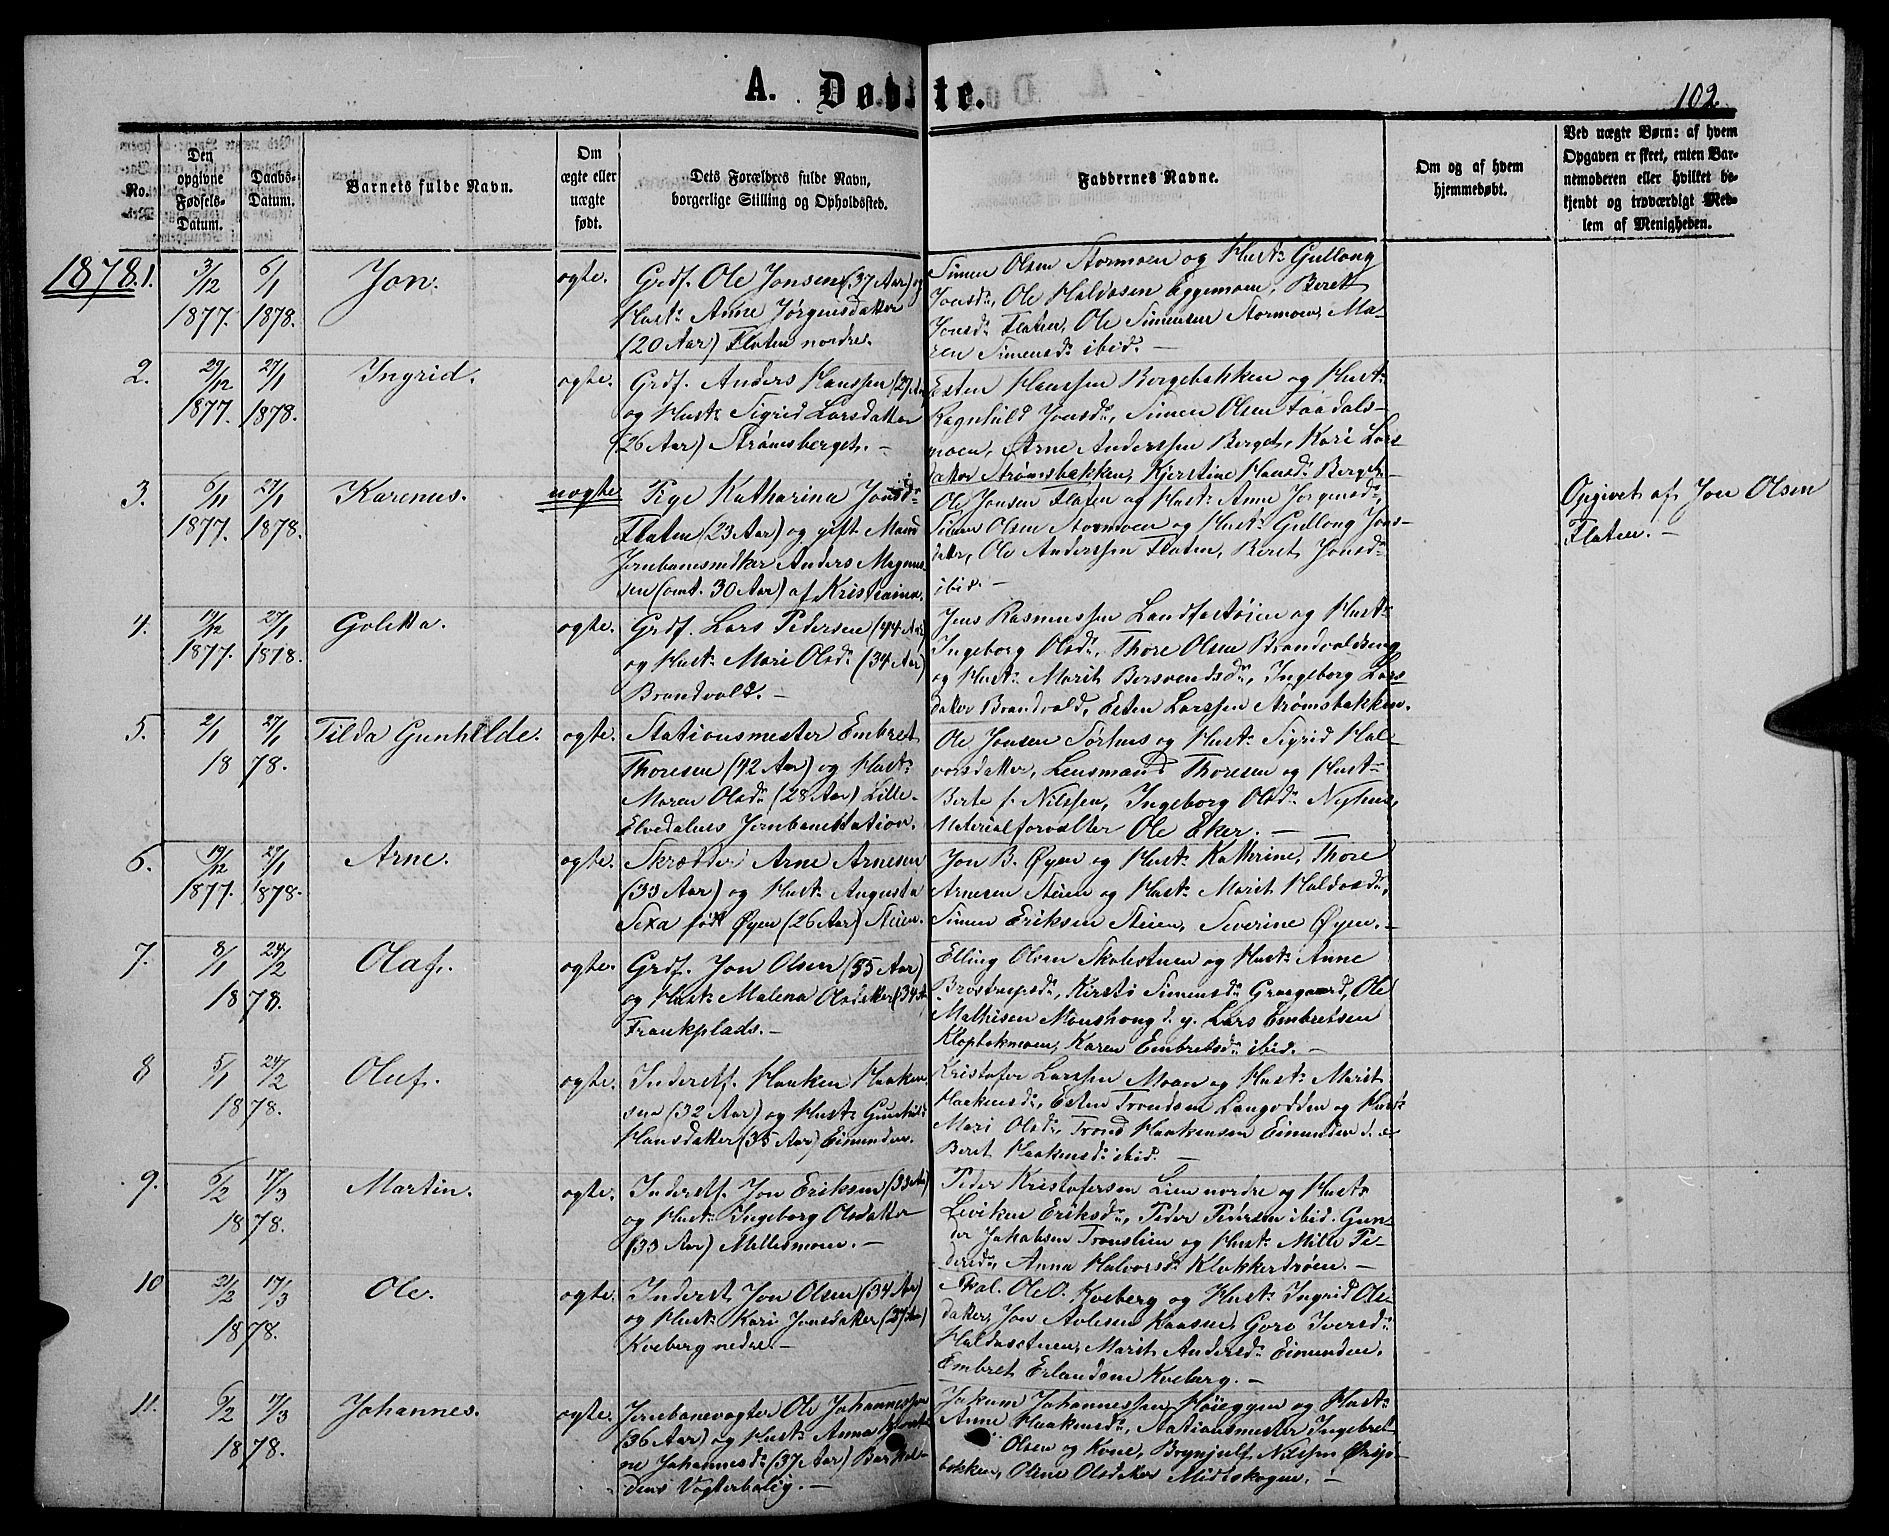 A. Døbte.
102
No.
Den opgivne Fødsels-Datum.
Daabs-Datum.
Barnets fulde Navn.
Om ægte eller uægte født.
Dets Forældres fulde Navn, borgerlige Stilling og Opholdssted.
Faddernes Navne.
Om og af hvem hjemmedøbt.
Ved uægte Børn: af hvem Opgaven er skeet, enten Barnemoderen eller hvilket bekjendt og troværdigt Medlem af Menigheden.
1878. 1. 3/12 1877. 6/1 1878. Jon. ægte.
Grdf. Ole Jonsen (37 Aar) og
Hust: Anne Jørgensdatter
(20 Aar) Flaten nordre.
Simen Olsen Stormoen og Hust: Gullong
Jonsdr, Ole Haldosen Eggemoen, Beret
Jonsdr Flaten, Ole Simensen Stormoen, Ma-
ren Simensdr ibid. —
2. 29/12 1877. 27/1 1878. Ingrid. ægte.
Grdf. Anders Hanssen (27 Aar)
og Hust: Sigrid Larsdatter
(26 Aar) Strømsberget. —
Esten Hanssen Borgebakken og Hust:
Ragnhild Jonsdr, Simen Olsen Faadals-
moen, Arne Anderssen Berget, Kari Lars-
datter Strømsbakken, Kjerstine Hansdr Berget
3. 6/11 1877. 27/1 1878. Karenus. uægte
Pige Katharina Jonsdr
Flaten (23 Aar) og gift Mand
Jernbanesnidker Anders Magnus-
sen (omt. 30 Aar) af Kristiania.
Ole Jonsen Flaten og Hust: Anne Jørgensdr,
Simen Olsen Stormoen og Hust: Gullong Jons-
datter, Ole Anderssen Flaten, Beret Jonsdr
ibid. —
Opgivet af Jon Olsen
Flaten. —
4. 19/12 1877. 27/1 1878. Goletta. ægte.
Grdf. Lars Pedersen (44 Aar)
og Hust: Mari Olsdr (34 Aar)
Brandvold. —
Jens Rasmussen Landfastøien og Hust:
Ingeborg Olsdr, Thore Olsen Brandvoldseng
og Hust: Marit Bersvendsdr, Ingeborg Lars
datter Brandvold, Esten Larssen Strømsbakken.
5. 2/1 27/1 1878. Tilda Gunhilde. ægte.
Stationsmester Embret
Thoresen (42 Aar) og Hust:
Maren Olsdr (28 Aar) Lille-
Elvedalens Jernbanestation.
Ole Jonsen Sørhus og Hust: Sigrid Hal-
vorsdatter, Lensmand Thoresen og Hust:
Berte f. Nilssen, Ingeborg Olsdr Nyhus,
Materialforvalter Ole Eker. —
6. 19/12 1877. 27/1 1878. Arne. ægte.
Skrædder Arne Arnesen
(33 Aar) og Hust: Augusta
Sexa født Øyen (26 Aar) Steien.
Jon B. Øyen og Hust: Kathrine, Thore
Arnesen Steien og Hust: Marit Haldosdr,
Simen Eriksen Steien, Severine Øyen. —
7. 8/1 24/2 1878. Olaf. ægte.
Grdf. Jon Olsen (55 Aar)
og Hust: Malena Olsdatter (34 A
Trankplads. —
Elling Olsen Skolestuen og Hust: Anne
Brostrupsdr, Kirsti Simensdr Graagaard, Ole
Mathisen Moushoug d. y. Lars Embretsen
Kloptekmoen, Karen Embretsdr ibid. —
8 5/1 24/2 1878. Oluf. ægte.
Inderstf. Haaken Haaken-
sen (32 Aar) og Hust: Gunhild
Hansdatter (35 Aar) Eimunden.
Kristofer Larssen Moan og Hust: Marit
Haakensdr, Esten Trondsen Langodden og Hust:
Mari Olsdr, Trond Haakensen Eimunden d. æ
Beret Haakensdr ibid. —
9. 6/2 17/3 1878. Martin. ægte.
Inderstf. Jon Eriksen (33 Aar)
og Hust: Ingeborg Olsdatter
(33 Aar) Millesmoen. —
Peder Kristofersen Lien nordre og Hust:
Leviken Eriksdr, Peder Pedersen ibid. Gun-
der Jakobsen Tronslien og Hust: Mille Pe-
dersdr, Anna Halvorsdr Klokkertrøen. —
10 24/2 17/3 1878. Ole. ægte.
Inderst Jon Olsen (34 Aar)
og Hust: Kari Jonsdatter (29 Aar)
Kveberg nedre —
Skol. Ole O. Kveberg og Hust: Ingrid Ols-
datter, Jon Avlesen Kaasen, Goro Iversdr
Haldosstuen, Marit Andersdr Eimunden.
Embret Erlandsen Kveberg. —
11. 6/2 17/3 1878. Johannes. ægte.
Jernbanevogter Ole Johannessen
(36 Aar) og Hust: Anna
ne Johannesdr (37 Aar) Barkal-
dens Vogterbolig. —
Jakum Johannessen Høieggen og Hust:
Anne Haakensdr, Stationsmester Ingebret
Olsen og Kone, Brynjulf Nilssen Ørsjo-
bakken, Oline Olsdatter Midtskogen. —